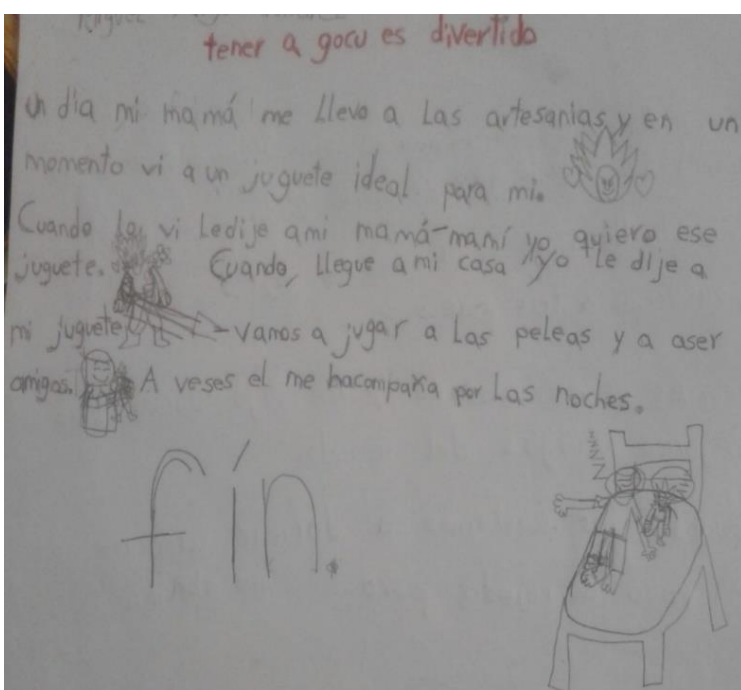 tener a gocu es divertido
un dia mi mamá me llevo a las artesanias y en un
momento vi a un juguete ideal para mi.
Cuando lo vi ledije ami mamá-mamí yo quiero ese
juguete. Cuando, llegue a mi casa yo le dije a
mi juguete -vamos a jugar a las peleas y a aser
amigos. A veses el me hacompaña por las noches.
fín.
z
z
z
Z